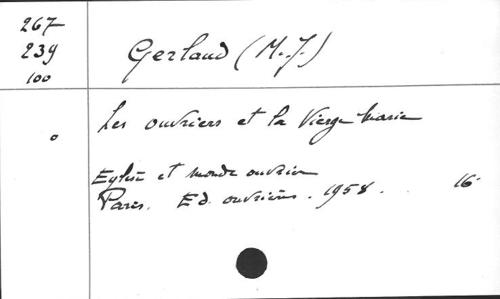 267
239
100
Gerlaud (M.-J.)
Les ouvriers et la Vierge Marie
Eglise et monde ouvrier
Paris. Ed. ouvrières. 1958. 16°